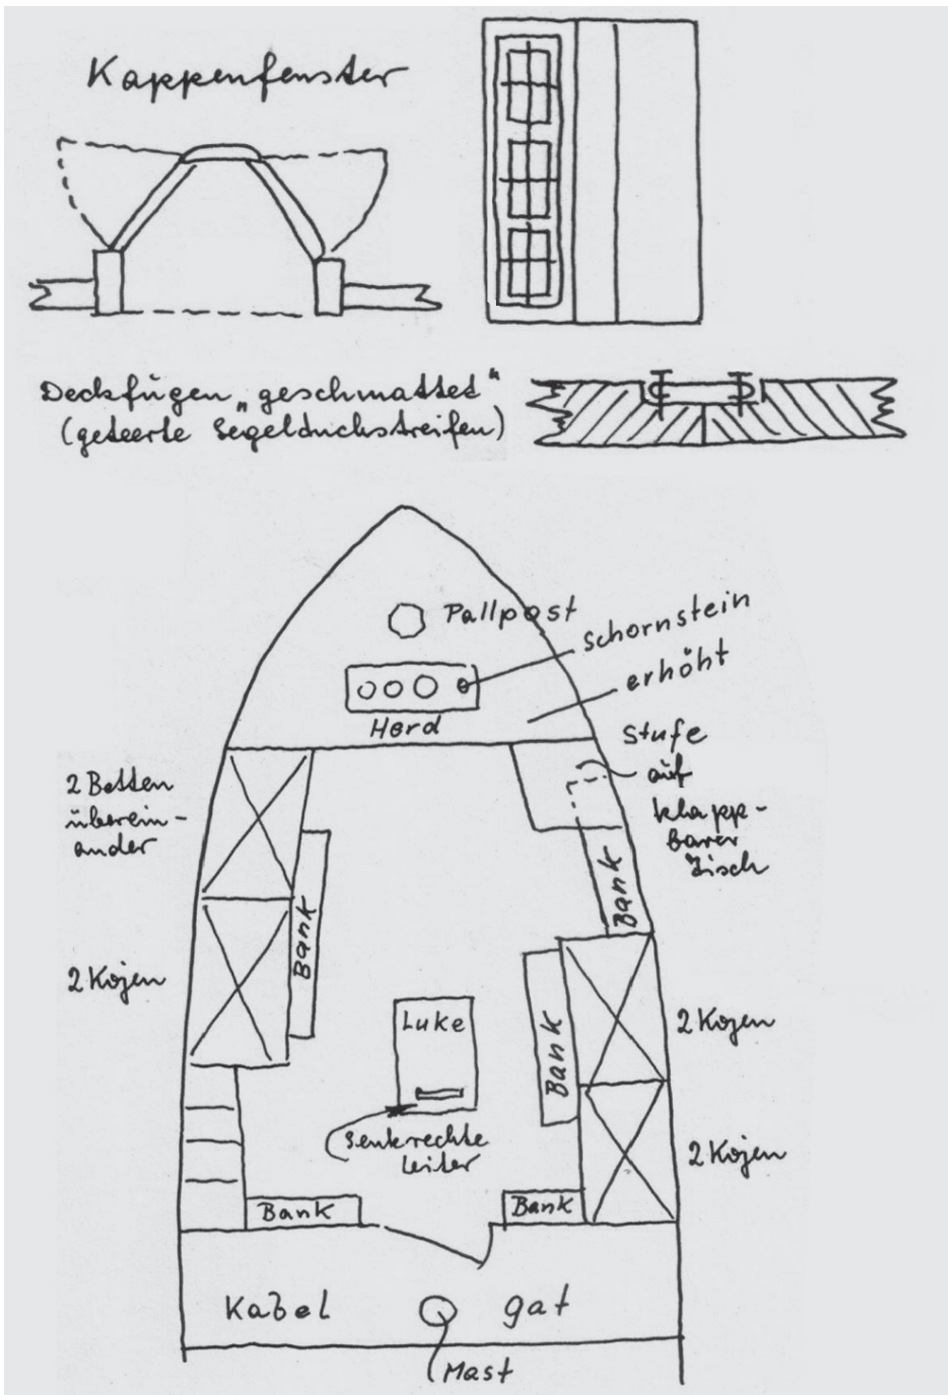 Kappenfenster
Deckfugen „geschmattet“
(geteerte Segeltuchstreifen)
Pallpost
Schornstein
erhöht
Herd
Stufe
auf
klapp-
barer
Tisch
2 Betten
überein-
ander
Bank
Bank
2 Kojen
Luke
Bank
2 Kojen
senkrechte
Leiter
2 Kojen
Bank
Bank
Kabel gat
Mast